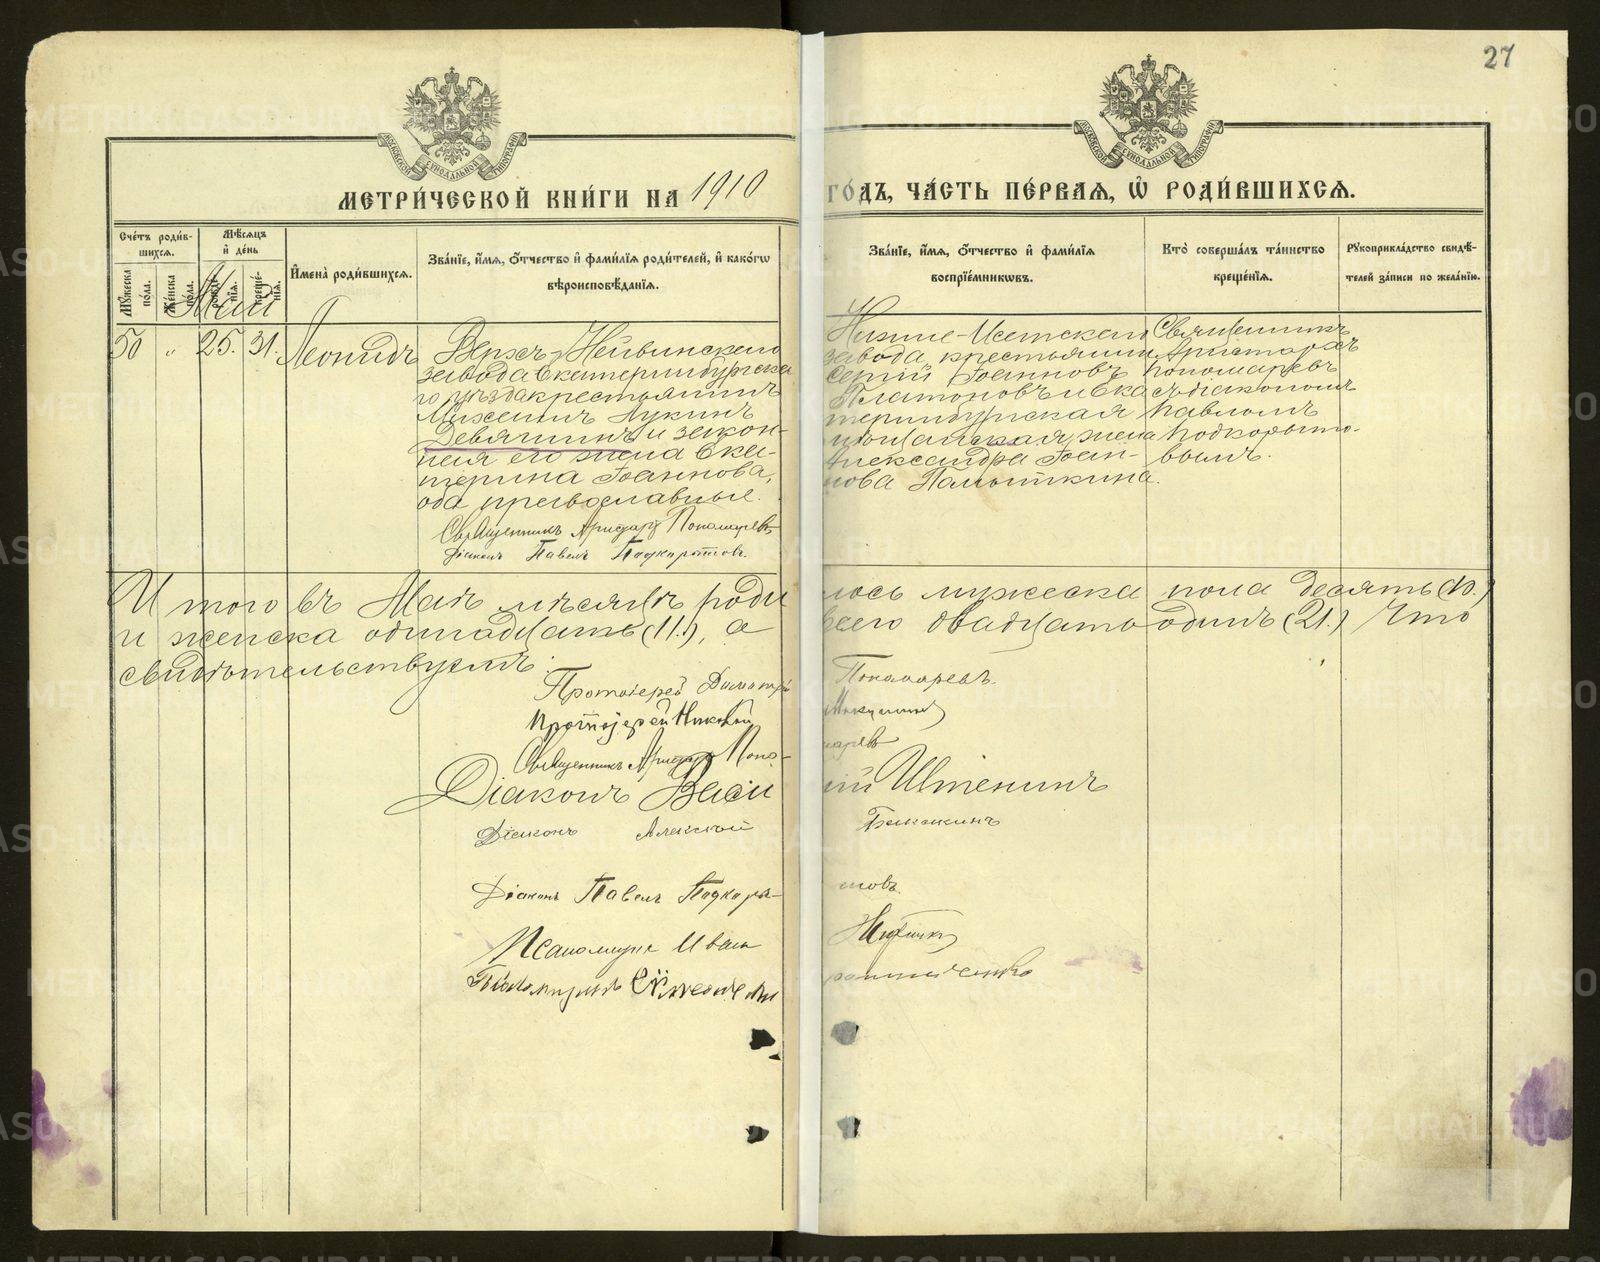 27
МЕТРИ́ЧЕСКОЙ КНИ́ГИ НА 1910 ГО́ДЪ, ЧА́СТЬ ПЕ́РВАЯ, Ѡ РОДИ́ВШИХСЯ.
Сче́тъ роди́в-
шихся.
Му́жеска по́ла.
Же́нска по́ла.
Мѣ́сяцъ и де́нь
рожде́нїя.
креще́нїя.
И҆мена̀ роди́вшихся.
Зва́нїе, и҆́мя, ѻ҆́тчество и҆ фами́лїя роди́телей, и҆ како́гѡ
вѣроисповѣ́данїя.
Зва́нїе, и҆́мя, ѻ҆́тчество и҆ фами́лїя
воспрїе́мниковъ.
Кто̀ соверша́лъ та́инство
креще́нїя.
Рꙋкоприкла́дство свидѣ́-
телей за́писи по жела́нїю.
Май
50 „ 25. 31. Леонидъ
Верхъ-Нейвинскаго
завода Екатеринбургска
го уѣзда крестьянинъ
Михаилъ Лукинъ
Девятинъ и закон-
ная его жена Ека-
терина Іоаннова,
оба православные.
Священникъ Аристархъ Пономаревъ
Діаконъ Павелъ Подкорытовъ
Нижне-Исетскаго
завода крестьянинъ
Сергій Іоанновъ
Платоновъ и Ека
теринбургская
мѣщанская жена
Александра Іоан-
нова Паюткина.
Священникъ
Аристархъ
Пономаревъ
съ діакономъ
Павломъ
Подкорыто-
вымъ.
Итого въ Маѣ мѣсяцѣ роди лось мужеска пола десять (10.)
и женска одинадцать (11.), а всего двадцать одинъ (21.) Что
свидѣтельствуемъ:
Протоіерей Димитрій Пономаревъ.
Протоіерей Николай
Священникъ Аристархъ Поно- маревъ
Діаконъ Васи лій Ивтенинъ
Діаконъ Алексѣй
Діаконъ Павелъ Подкоры- товъ.
Псаломщикъ Иванъ
Псаломщикъ